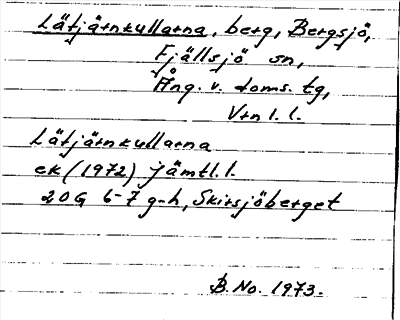 Lätjärnkullarna, berg, Bergsjö,
Fjällsjö sn,
Ång. v. doms. tg,
Vrn l. l.
Lätjärnkullarna
ek (1972) Jämtl. l.
20G 6-7 g-h, Skirsjöberget
B. No. 1973.